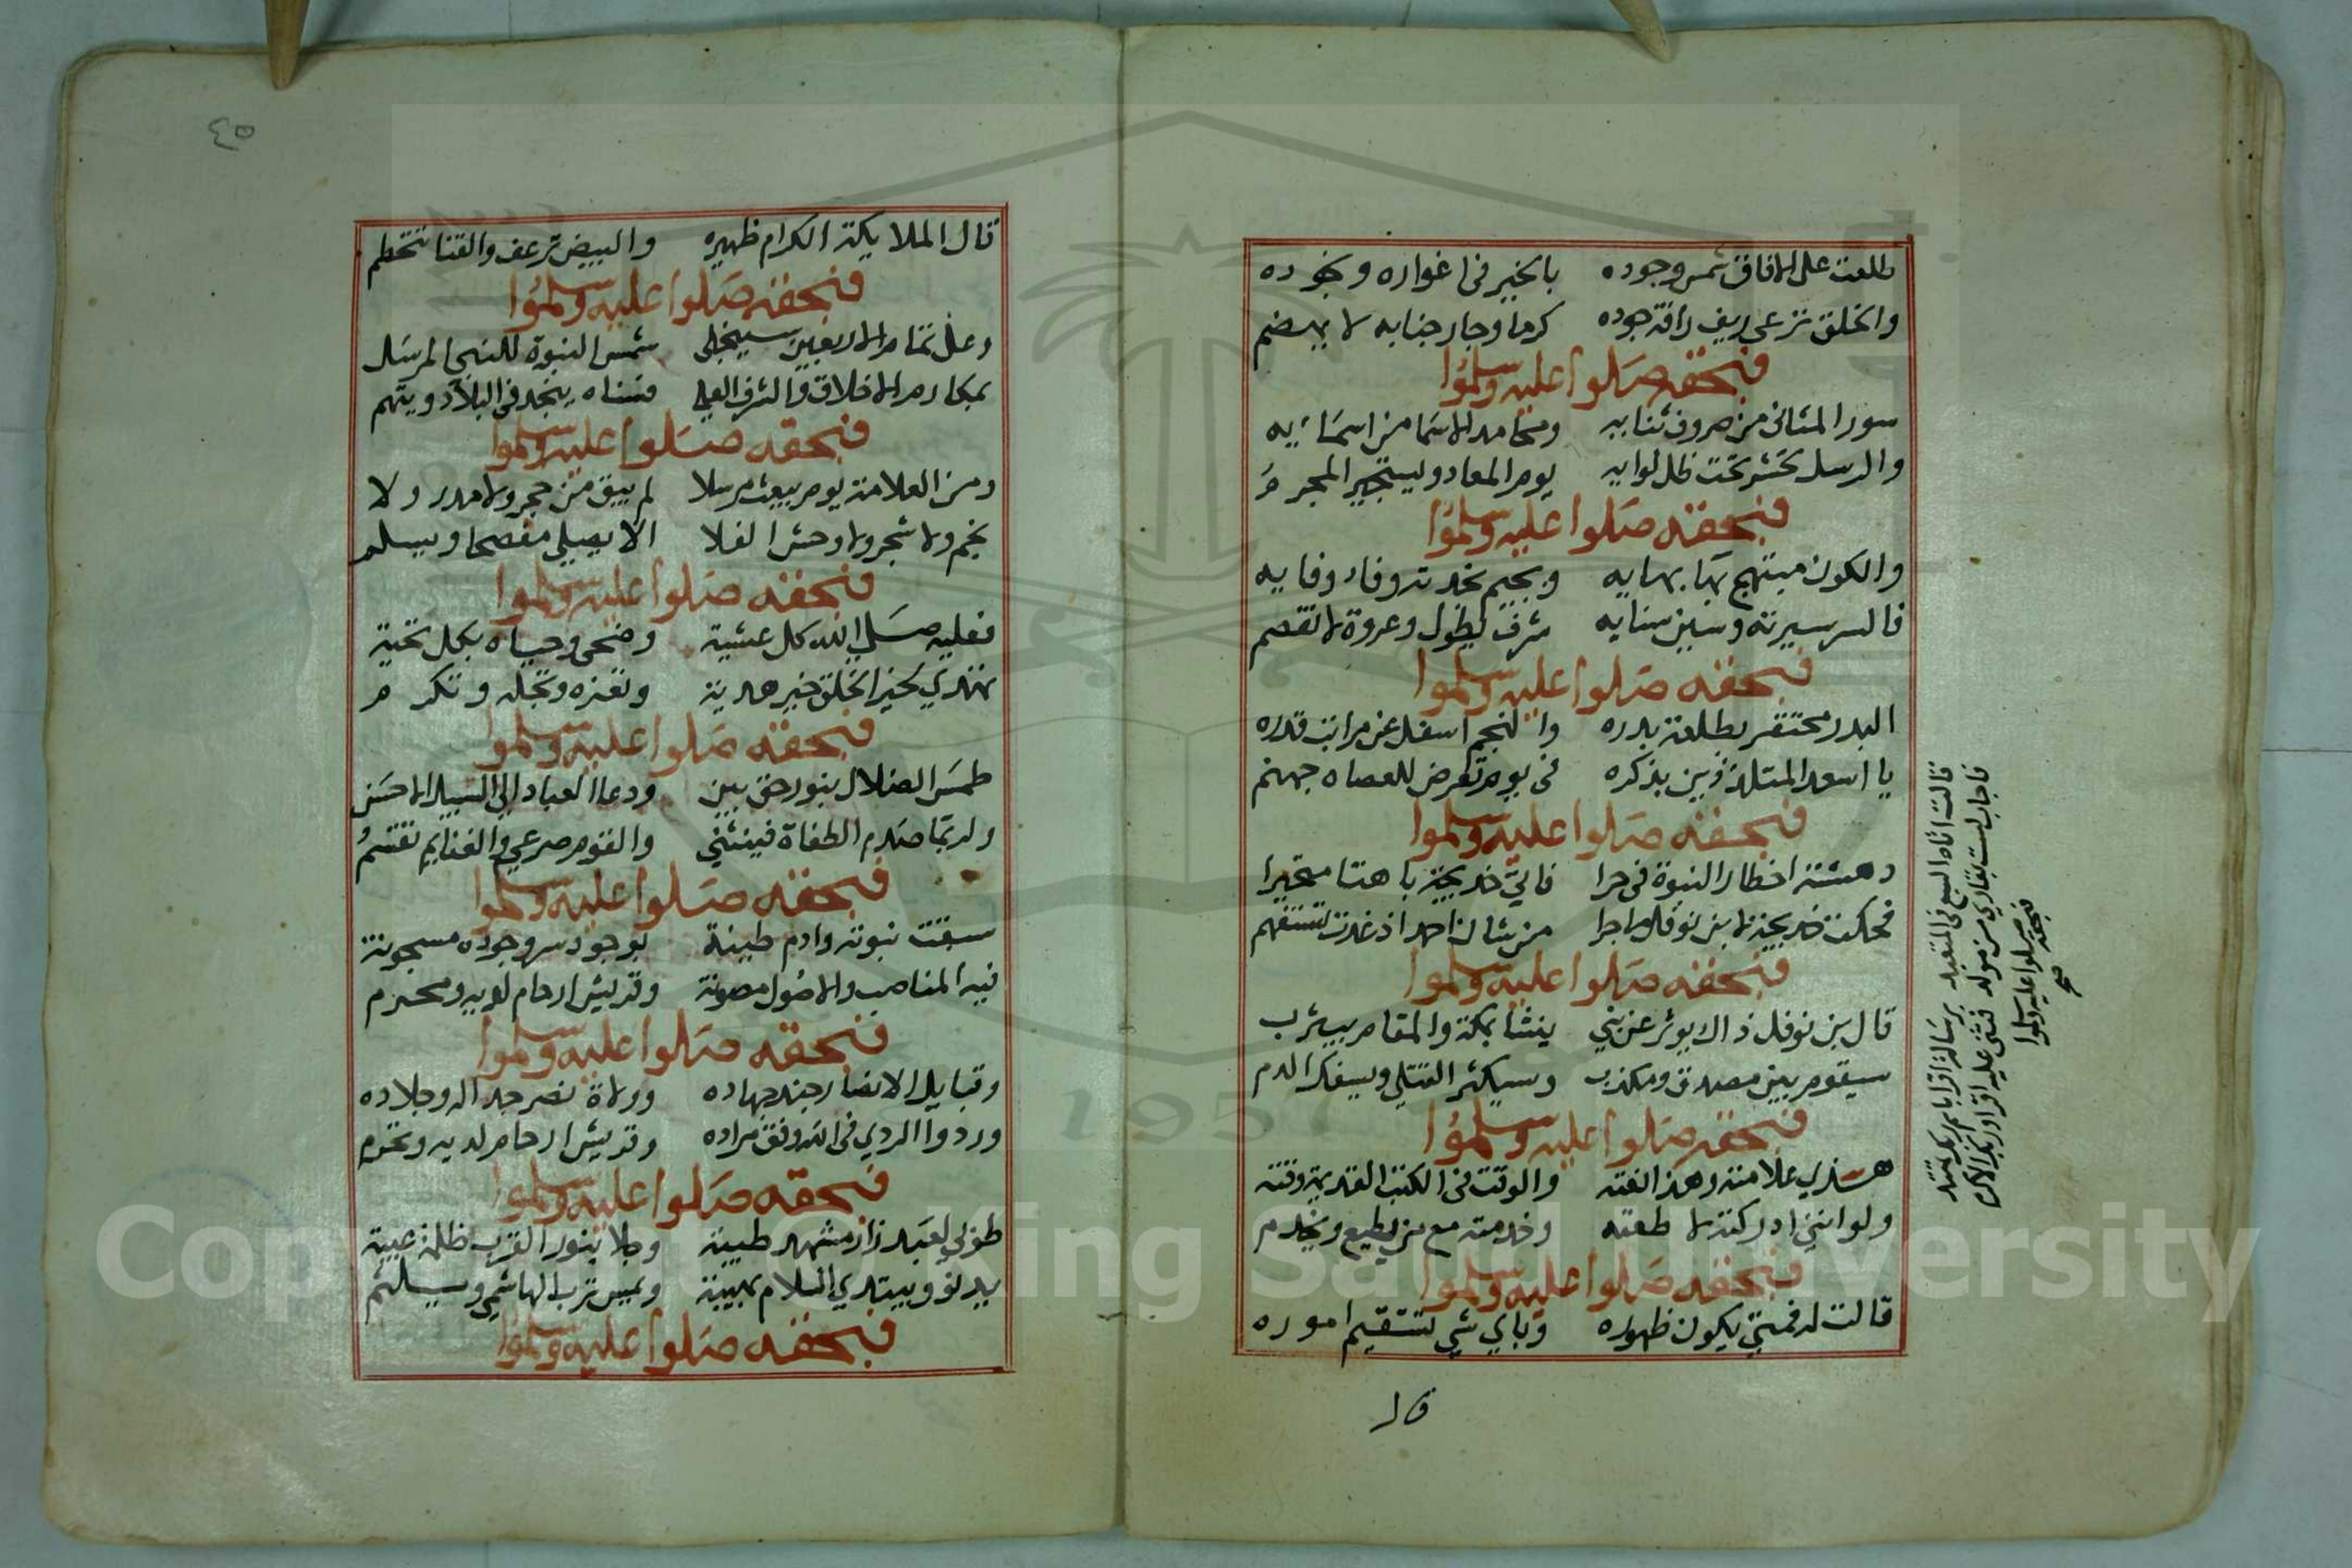 طلعت على الافاق شمس وجوده بالخير فى اغواره ونجوده
والخلق ترعى ريف رافة جوده كرما وجار جنابه لا يهضم
فبحقه صلوا عليه وسلموا
سور المثانى من حروف ثنايه ومحامد الاسما من اسمايه
والرسل تحشر تحت ظل لوايه يوم المعاد ويستجير المجرم
فبحقه صلوا عليه وسلموا
والكون مبتهج بها بهايه وبجيم نجدته وفا وفايه
فالسر سيرته وسين سنايه شرف يطول وعروة لا تفصم
فبحقه صلوا عليه وسلموا
البدر محتقر بطلعة بدره والنجم اسفل عن مراتب قدره
يا اسعد المتلذذين بذكره فى يوم تعرض للعصاه جهنم
فبحقه صلوا عليه وسلموا
دهشته اخطار النبوة فى حرا فاتى خديجة باهتا متحيرا
فحكت خديجة لابن نوفل ما جرا من شان احمد اذ غدت تستفهم
فبحقه صلوا عليه وسلموا
قال بن نوفل ذاك يوثر عن نبي ينشا بمكة والمقام بيثرب
سيقوم بين مصدق ومكذب وسيكثر القتلى ويسفك الدم
فبحقه صلوا عليه وسلموا
هذي علامته وهذا نعته والوقت فى الكتب القديمة وقته
ولو انني ادركته لا طعته وخدمته مع من يطيع ويخدم
فبحقه صلوا عليه وسلموا
قالت له فمتى يكون ظهوره وباي شي تستقيم اموره
قال
قالت اتاه السبع فى المتعبد برسالة اقرا باسم ربك تهتد
فاجاب لست بقاري من مولد فثنى عليه اقرا وربك الاكرم
فبحقه صلوا عليه وسلموا
صح
٥٤
قال الملايكة الكرام ظهيره والبيض ترعف والقنا تتحطم
فبحقه صلوا عليه وسلموا
وعلى تمام الاربعين سينجلى شمس النبوة للنبي المرسل
بمكارم الاخلاق والشرف العلي فسناه ينجد فى البلاد ويتهم
فبحقه صلوا عليه وسلموا
ومن العلامة يوم يبعث مرسلا لم يبق من حجر ولا مدر ولا
نجم ولا شجر ولا وحش الفلا الا يصلي مفصحا ويسلم
فبحقه صلوا عليه وسلموا
فعليه صلى الله كل عشية وضحى وحياه بكل تحية
تهدي لخير الخلق خير هدية وتعزه وتجله وتكرم
فبحقه صلوا عليه وسلموا
طمس الضلال بنور حق بين ودعا العباد الي السبيل الاحسن
ولربما صدم الطغاة فينثني والقوم صرعي والغنايم تقسم
فبحقه صلوا عليه وسلموا
سبقت نبوته وادم طينة بوجود سر وجوده معجونة
فيه المناصب والاصول مصونة وقريش ارحام لديه ومحرم
فبحقه صلوا عليه وسلموا
وقبايل الانصار جند جهاده وولاة نصر جداله وجلاده
وردوا الردي فى الله وفق مراده وقريش ارحام لديه وتحرم
فبحقه صلوا عليه وسلموا
طوبي لعبد زار مشهد طيبة وجلا بنور القرب ظلمة غيبة
يدنو ويبتدي السلام بهيبة ويمس ترب الهاشمي ويلثم
فبحقه صلوا عليه وسلموا